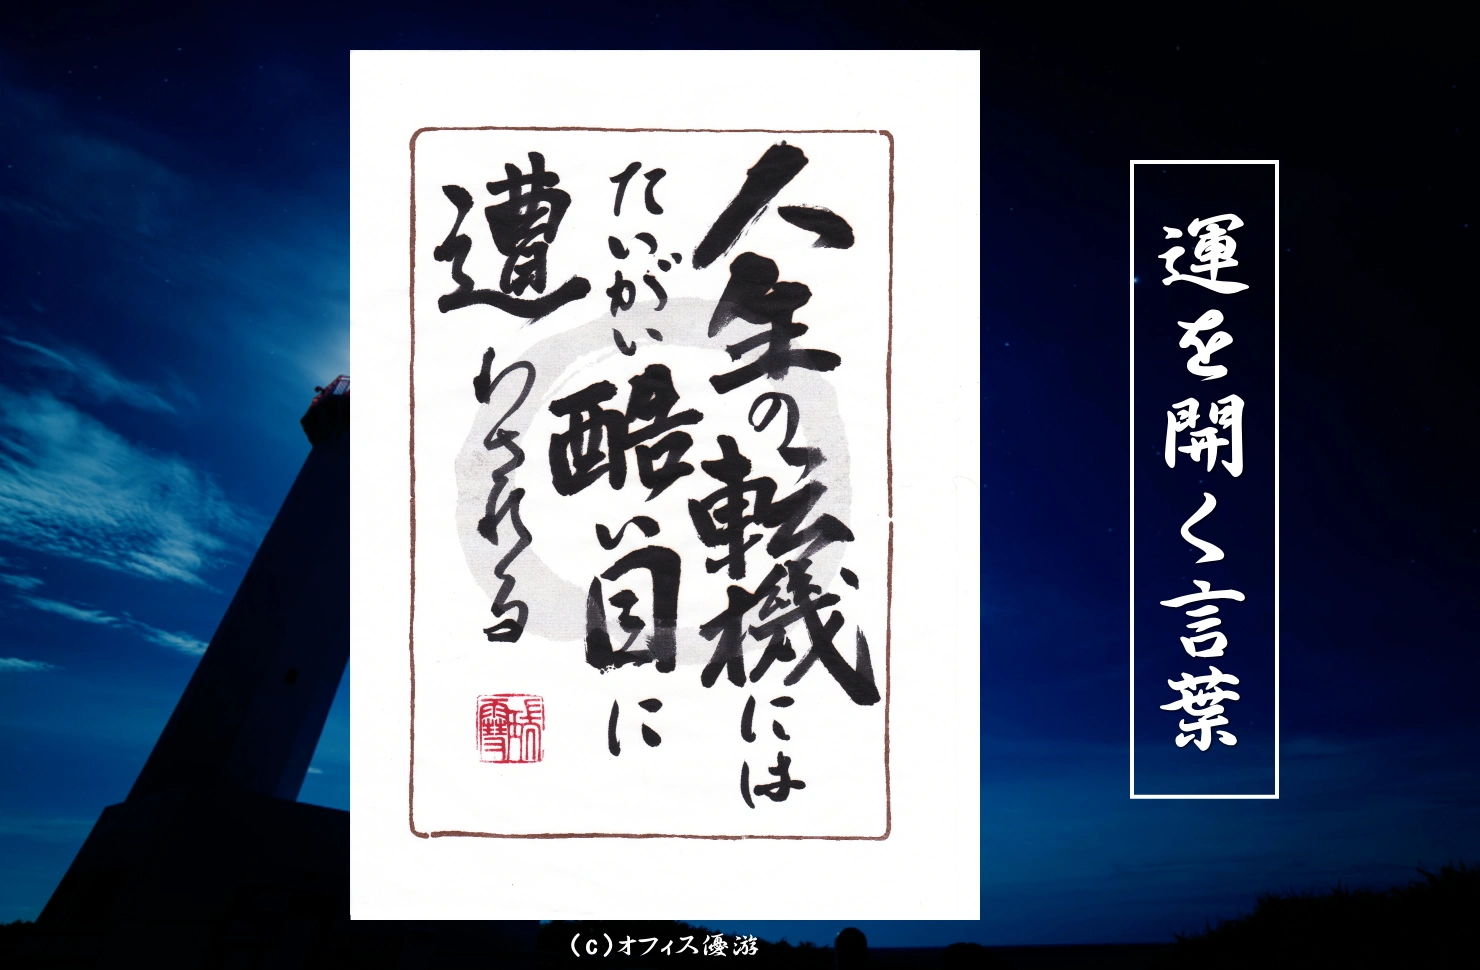 運を開く言葉
人生の転機には
たいがい酷い目に
遭わされる
(c)オフィス優游